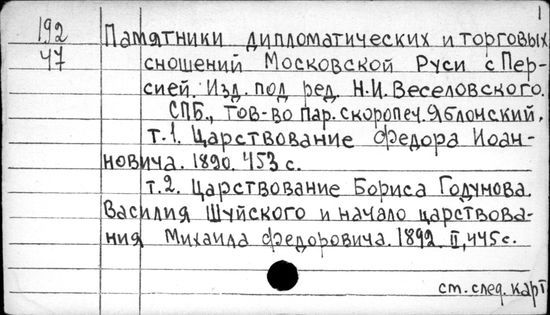 1
192 Памятники дипломатических и торговых
47 сношений Московской Руси с Пер-
сией. Изд. под ред. Н.И. Веселовского.
СПБ., Тов-во Пар. Скоропеч. Яблонский.
т.1. Царствование Федора Иоан-
новича. 1890. 453 с.
т.2. Царствование Бориса Годунова.
Василия Шуйского и начало царствова-
ния Михаила Федоровича. 1892. II, 445 с.
см. след. карт